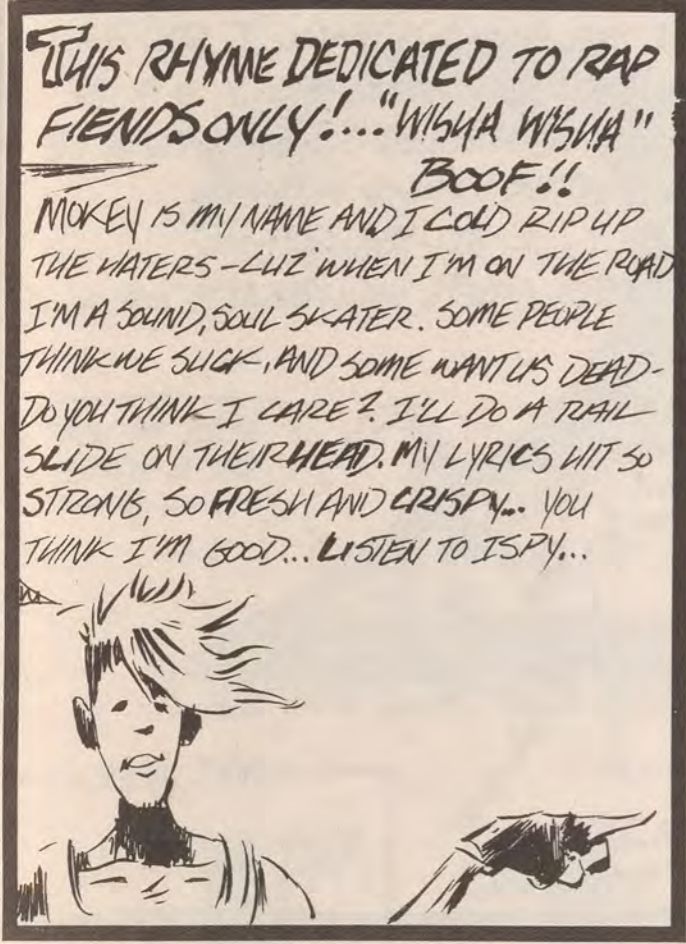 THIS RHYME DEDICATED TO RAP
FIENDS ONLY!..."WISHA WISHA"
BOOF!!
MOKEY IS MY NAME AND I COLD RIP UP
THE HATERS-CUZ' WHEN I'M ON THE ROAD
I'M A SOUND, SOUL SKATER. SOME PEOPLE
THINK WE SUCK, AND SOME WANT US DEAD-
DO YOU THINK I CARE? I'LL DO A RAIL
SLIDE ON THEIR HEAD. MY LYRICS HIT SO
STRONG, SO FRESH AND CRISPY... YOU
THINK I'M GOOD... LISTEN TO ISPY...